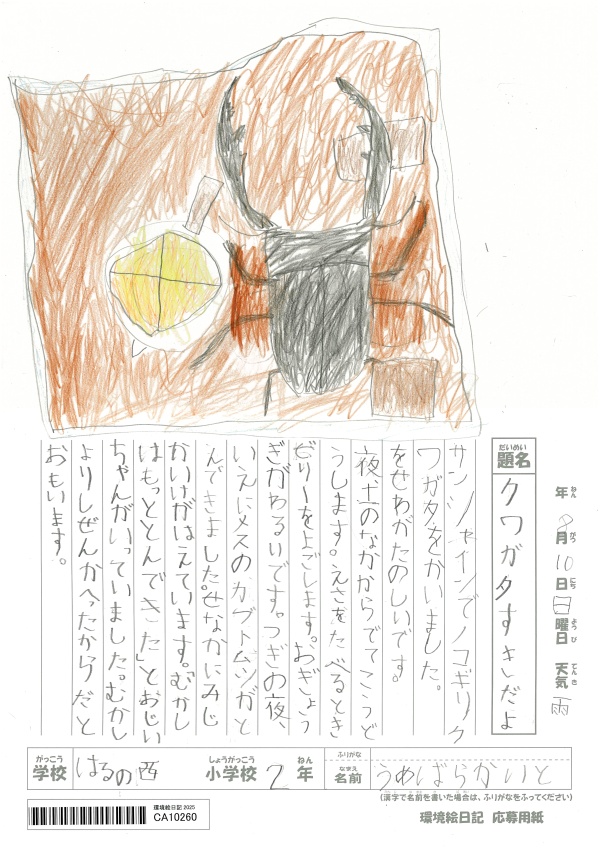 年 8月 10日 日曜日 天気 雨
題名 クワガタすきだよ
サンシャインでノコギリク
ワガタをかいました。
をせわがたのしいです。
夜土のなかからでてこうど
うします。えさをたべるとき
ぜりーをよごします。おぎょう
ぎがわるいです。つぎの夜、
いえにメスのカブトムシがと
んできました。せなかにみじ
かいけがはえています。むかし
はもっととんできた」とおじい
ちゃんがいっていました。むかし
よりしぜんがへったからだと
おもいます。
がっこう
学校 はるの西 小学校 2年
しょうがっこう ねん
ふりがな
なまえ
名前 うめばらかいと
(漢字で名前を書いた場合は、ふりがなをふってください)
環境絵日記 2025
CA10260
環境絵日記 応募用紙